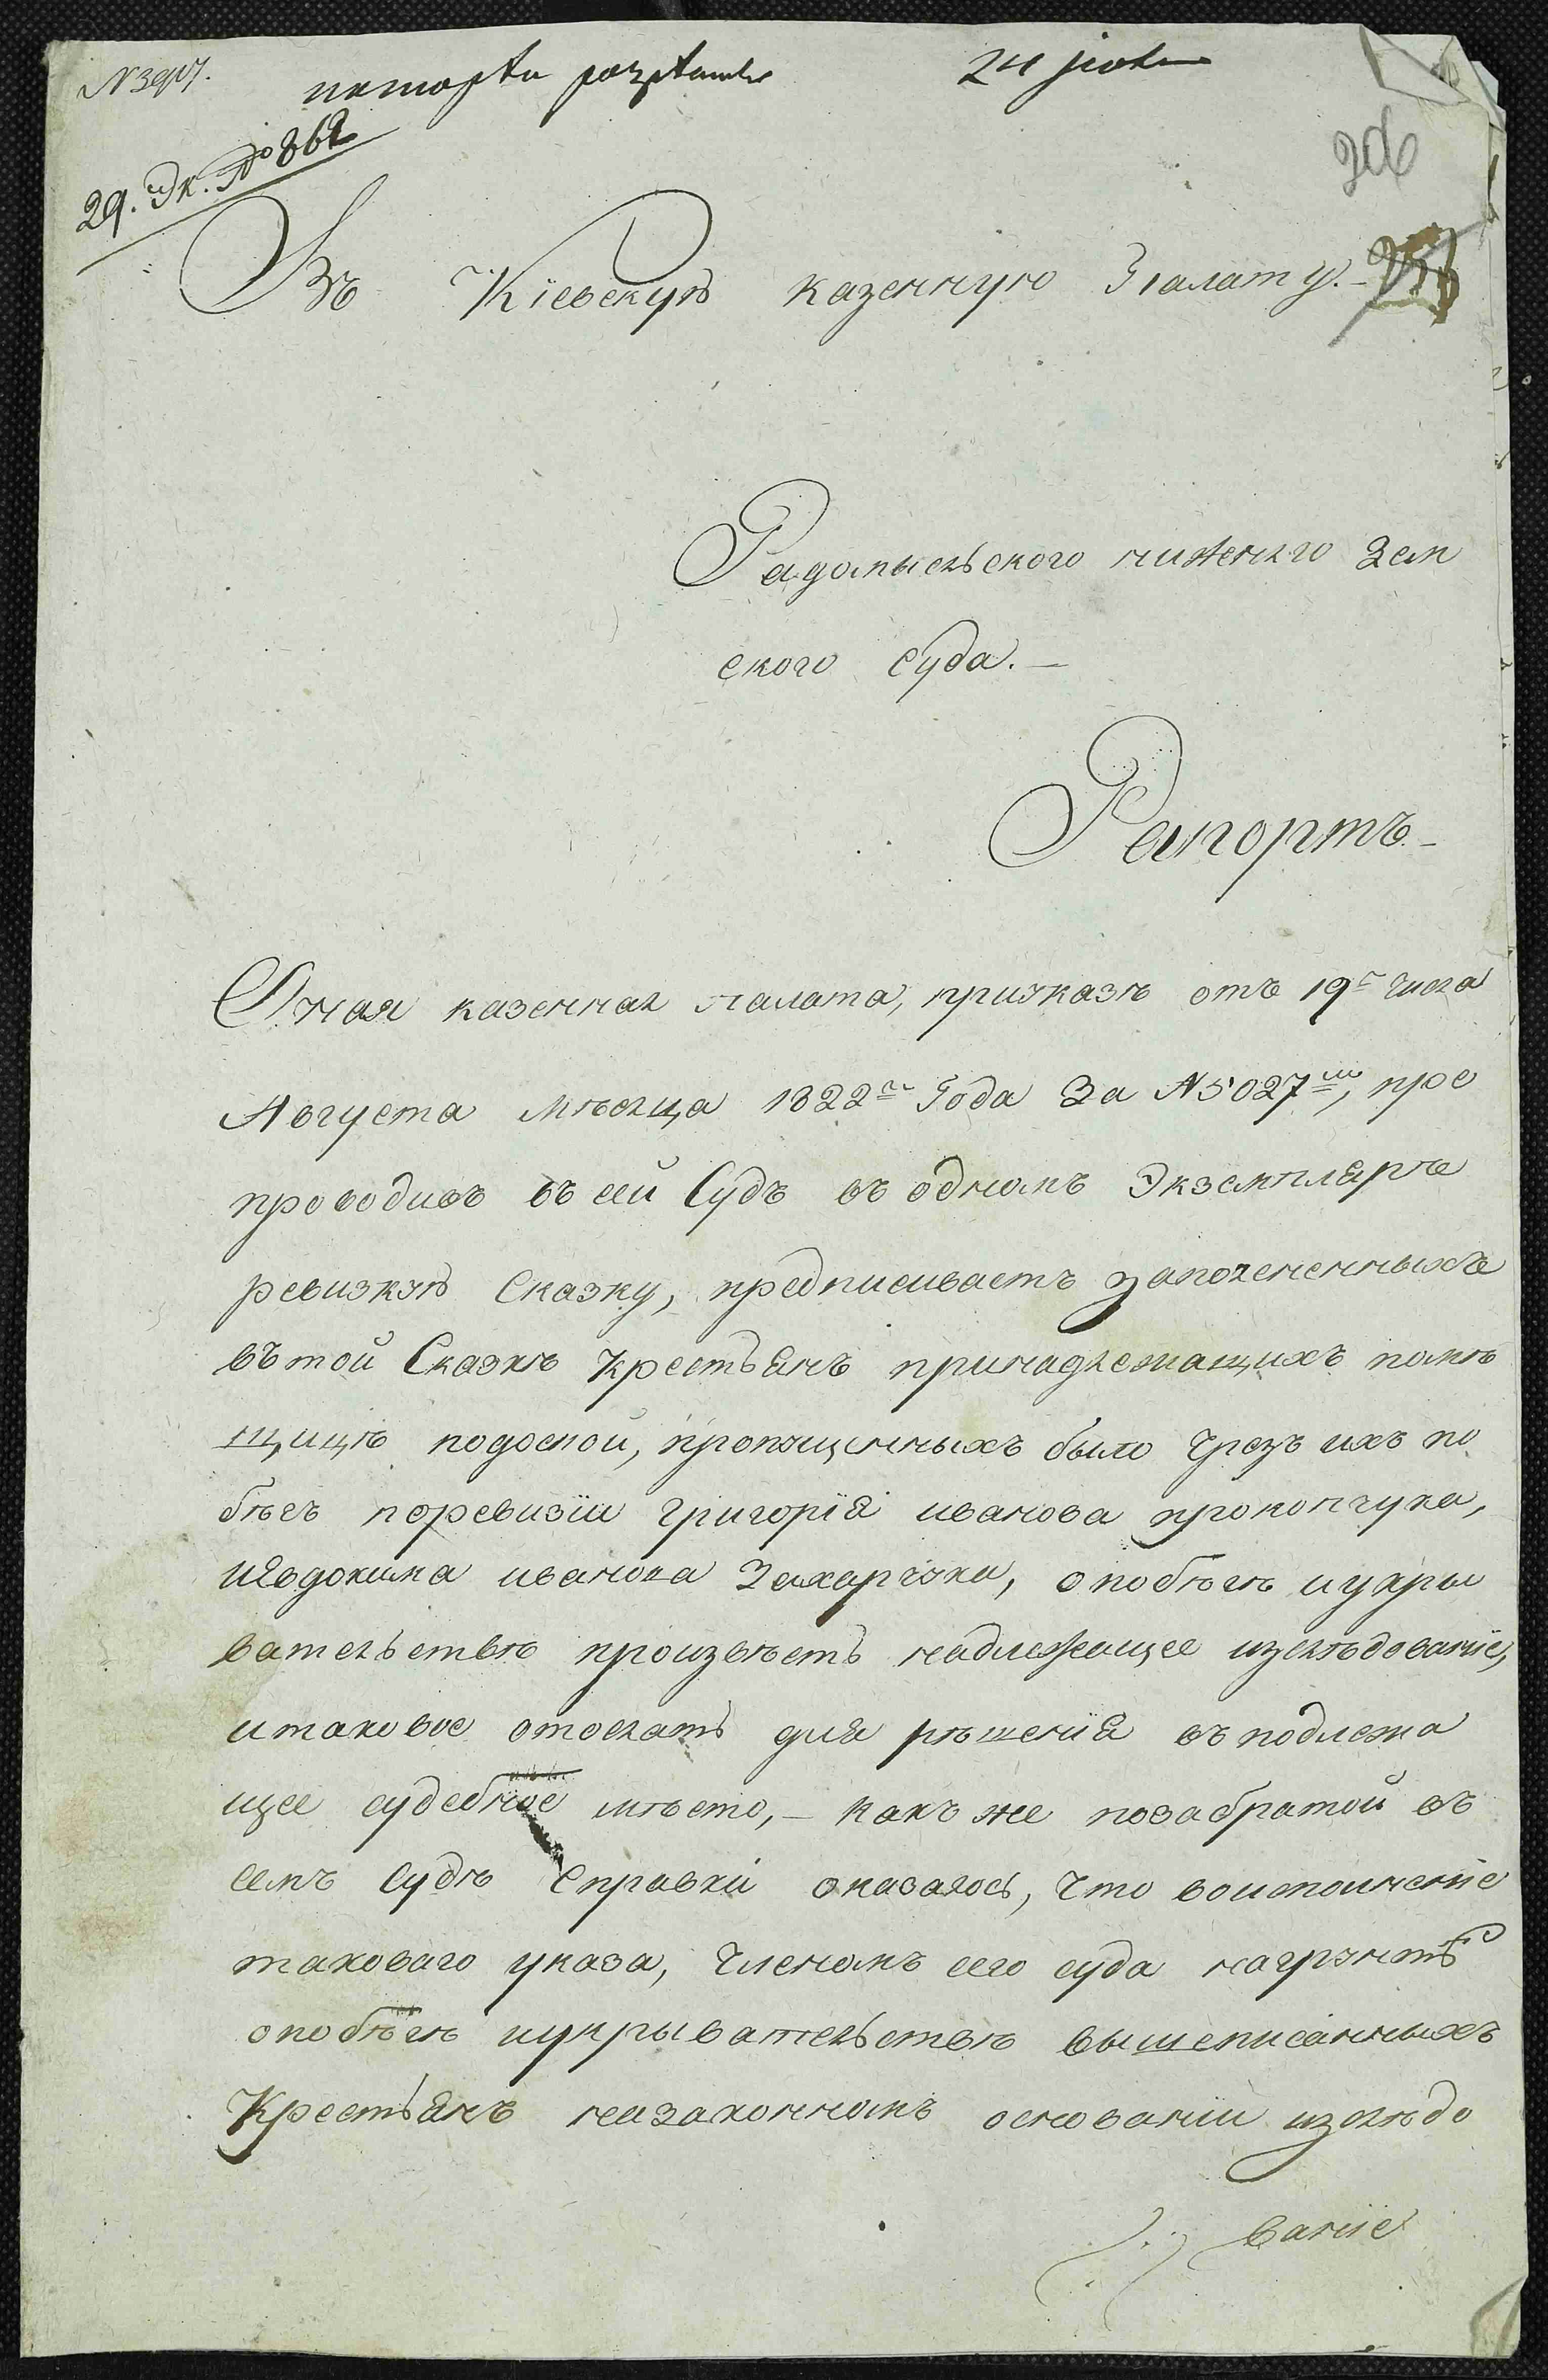 24
29. Эк. № 862
Въ Кіевскую казенную Палату.-
Радомысльского нижняго Зем
ского Суда.-
Рапортъ-
Оная казенная палата, приказѣ отъ 19г числа
Августа мѣсяца 1822го Года За N5027мъ, пре
проводивъ въ сей Судъ въ одномъ Экземпляре
ревизкую Сказку, предписиваетъ
въ той Сказкѣ Крестьянъ принадлежащихъ помѣ
щицѣ подоской, пропущенныхъ было чрезъ ихъ по
бѣгъ поревизіи Григорія иванова прокопчука,
иЯвдокима иванова Захарчука, опобѣгѣ иукры
вательствѣ произвѣсть надлежащее изслѣдованіе,
итаковое отослать для рѣшенія въ подлежа
щее судебное мѣсто,- какъ же позабратой въ
семъ Судѣ Справки оказалось, что воисполненіе
таковаго указа, Членомъ сего суда
опобѣгѣ иукрывательствѣ вышеписанныхъ
Крестьянъ назаконномъ основаніи изслѣдо
ваніе